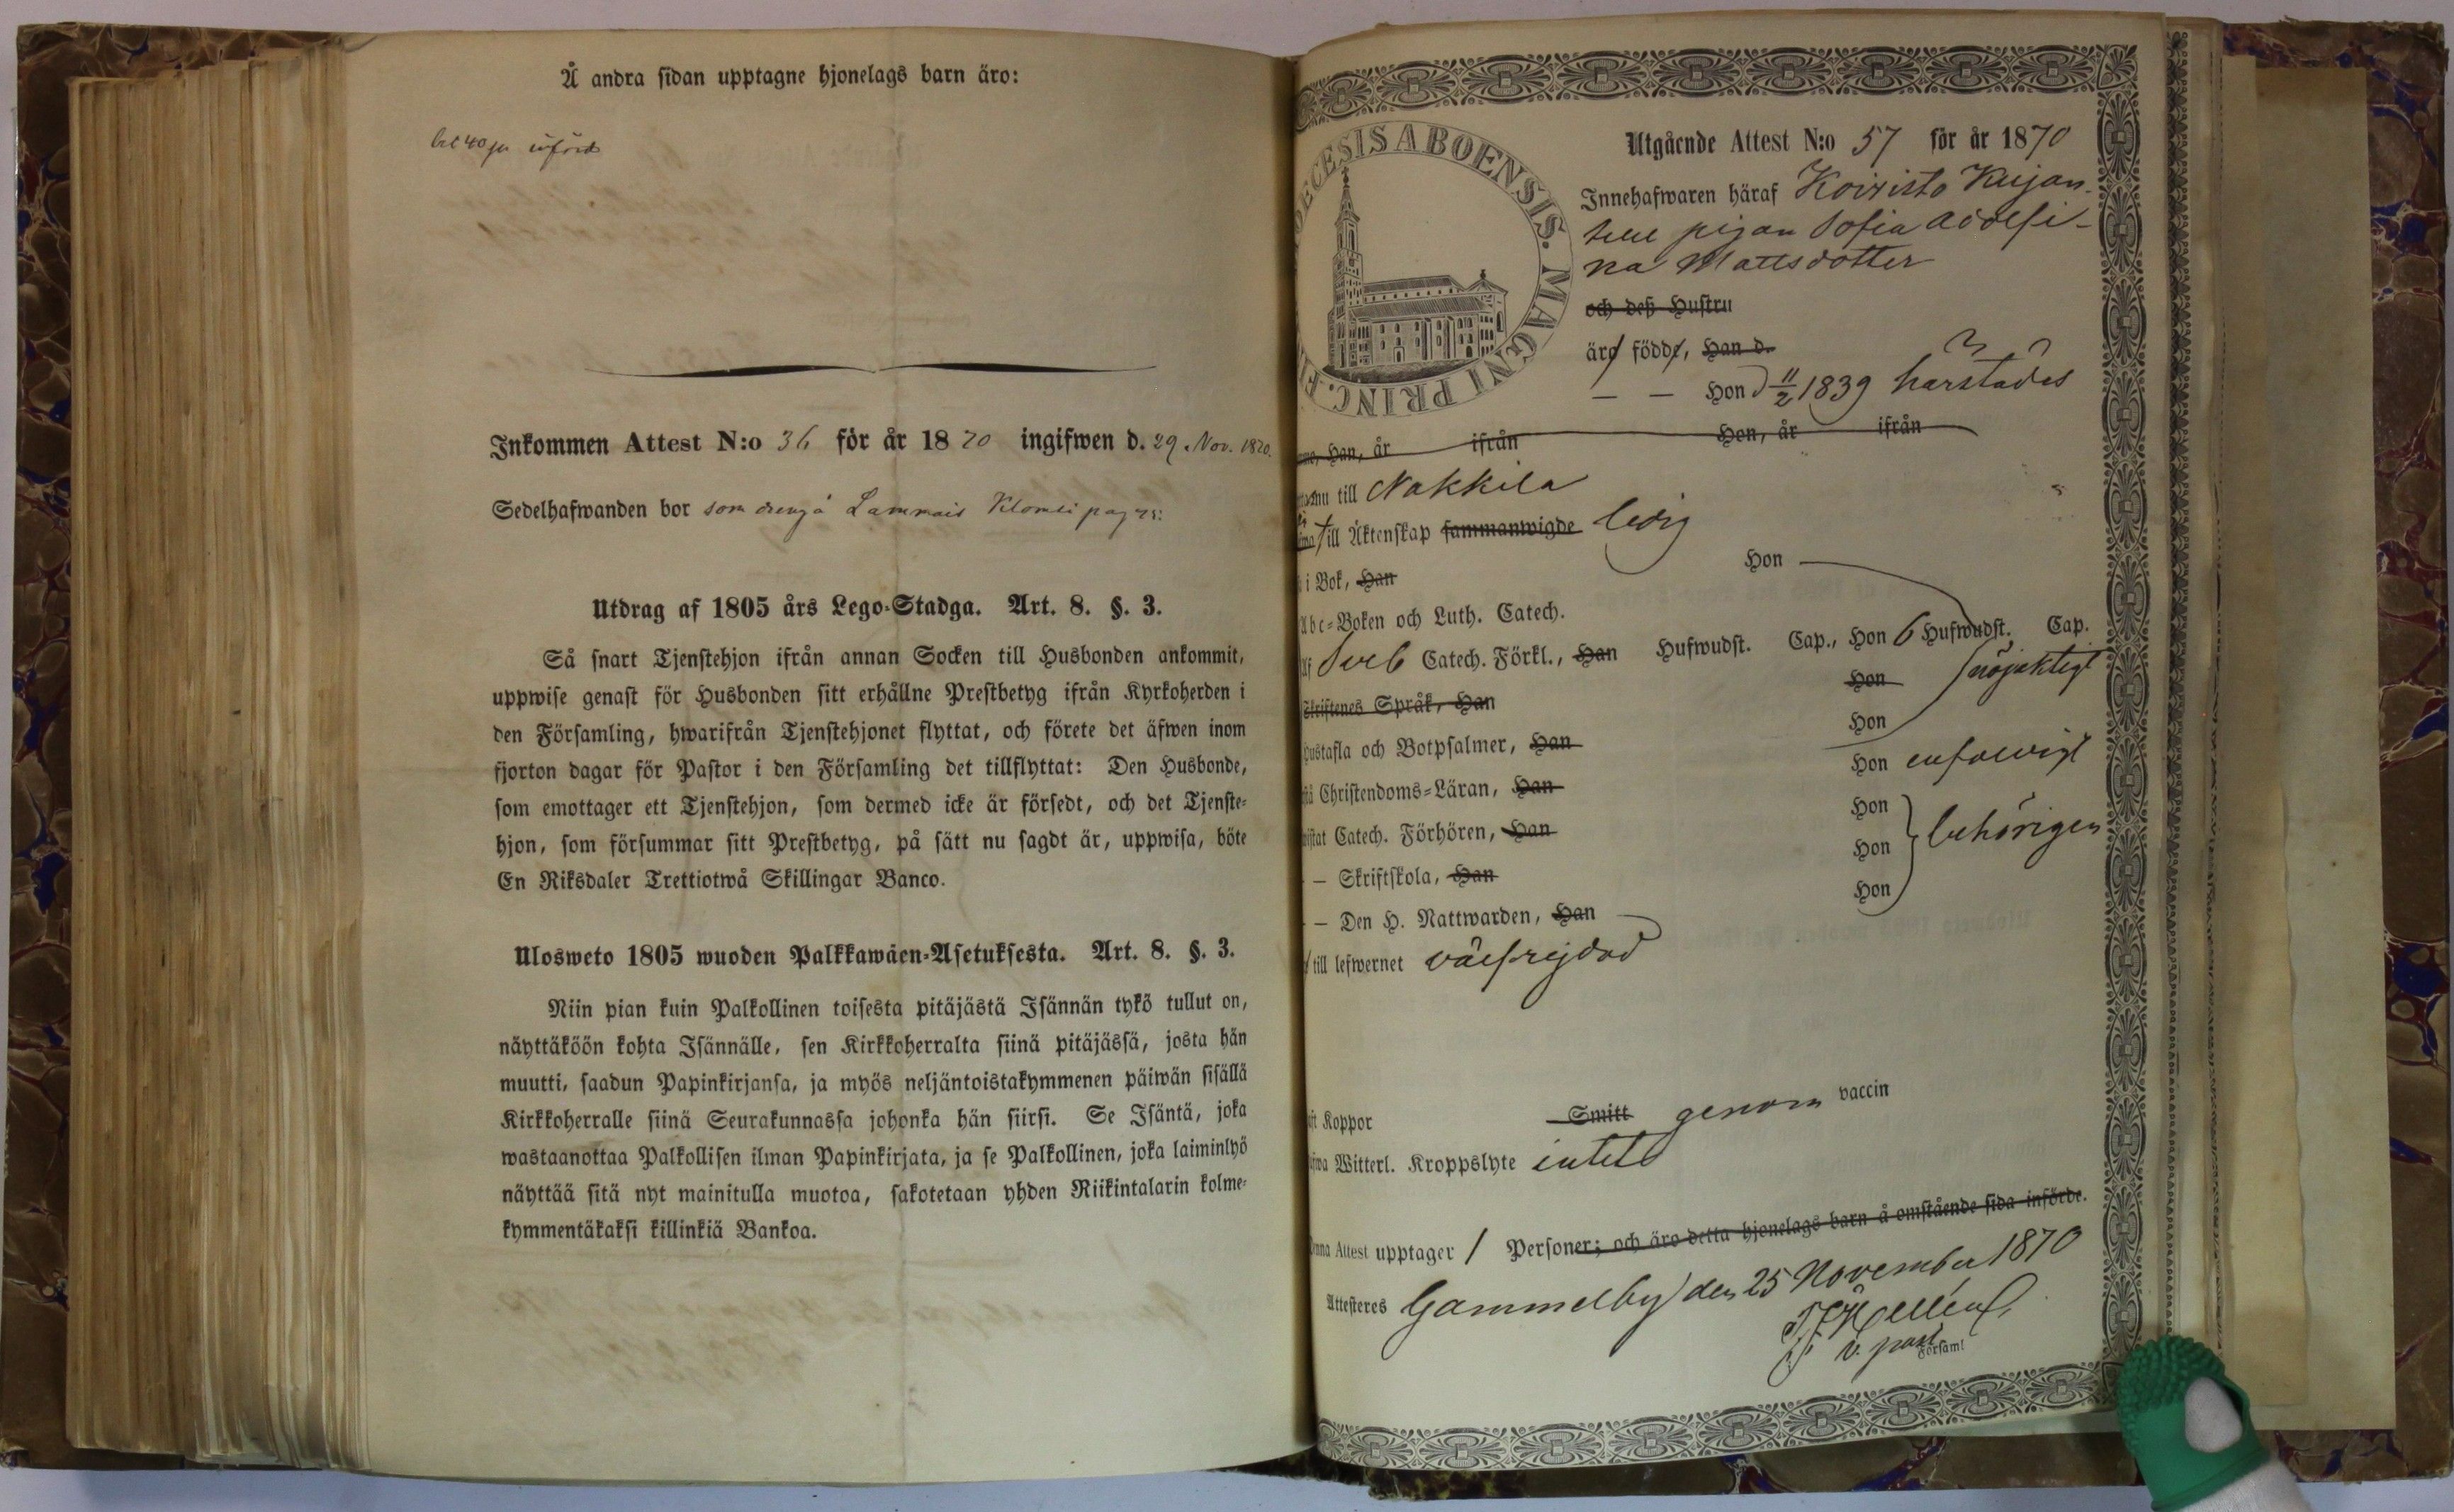 Å andra sidan upptagne hjonelags barn äro:
införd
Inkommen Attest N:o 36 för år 1870 ingifwen d. 29. Nov. 1870.
Sedelhafwanden bor som dreng å Lammais Klomsi pag
Utdrag af 1805 års Lego-Stadga. Art. 8. §. 3.
Så snart Tjenstehjon ifrån annan Socken till Husbonden ankommit,
uppwise genast för Husbonden sitt erhållne Prestbetyg ifrån Kyrkoherden i
den Församling, hwarifrån Tjenstehjonet flyttat, och förete det äfwen inom
fjorton dagar för Pastor i den Församling det tillflyttat: Den Husbonde,
som emottager ett Tjenstehjon, som dermed icke är försedt, och det Tjenste-
hjon, som försummar sitt Prestbetyg, på sätt nu sagdt är, uppwisa, böte
En Riksdaler Trettiotwå Skillingar Banco.
Ulosweto 1805 wuoden Palkkawäen-Asetuksesta. Art. 8. §. 3.
Niin pian kuin Palkollinen toisesta pitäjästä Isännän tykö tullut on,
näyttäköön kohta Isännälle, sen Kirkkoherralta siinä pitäjässä, josta hän
muutti, saadun Papinkirjansa, ja myös neljäntoistakymmenen päiwän sisällä
Kirkkoherralle siinä Seurakunnassa johonka hän siirsi. Se Isäntä, joka
wastaanottaa Palkollisen ilman Papinkirjata, ja se Palkollinen, joka laiminlyö
näyttää sitä nyt mainitulla muotoa, sakotetaan yhden Riikintalarin kolme-
kymmentäkaksi killinkiä Bankoa.
OECESIS ABOENSIS. MAGNI PRINC. FI
Utgående Attest N:o 57 för år 1870
Innehafwaren häraf Koivisto Kujan-
pigan Sofia Adolfi-
na Mattsdotter
och deß Hustru
äro födde, Han d.
— — Hon d 11/2 1839 härstädes
Han, år ifrån Hon, år ifrån
nu till Nakkila
till Äktenskap sammanwigde ledig
i Bok, Han Hon
Abc-Boken och Luth. Catech.
Sveb Catech. Förkl., Han Hufwudst. Cap., Hon 6 Hufwudst. Cap.
Skriftenes Språk, Han Hon nöjaktigt
Hustafla och Botpsalmer, Han Hon
Christendoms-Läran, Han Hon enfaldigt
Catech. Förhören, Han Hon
— Skriftskola, Han Hon behörigen
— Den H. Nattwarden, Han Hon
till lefwernet välfrejdad
Koppor Smitt genom vaccin
Witterl. Kroppslyte intet
Attest upptager 1 Personer; och äro detta hjonelags barn å omstående sida införde.
Attesteres Gammelby den 25 November 1870
Hellén
v. past
Församl